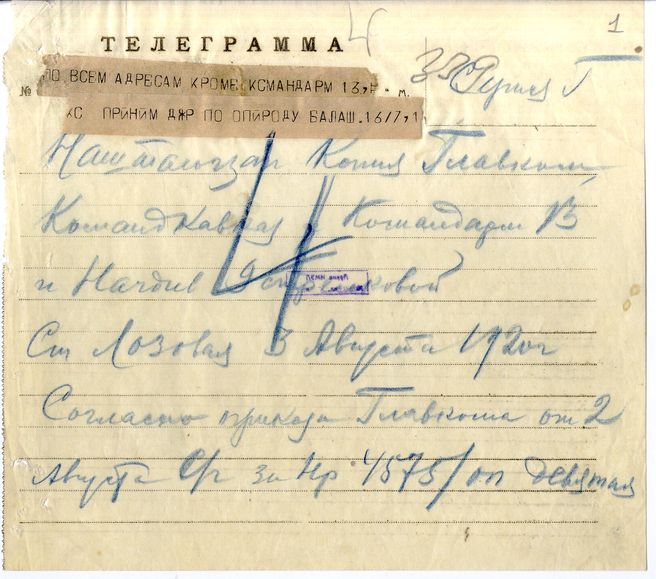 1
4
ТЕЛЕГРАММА
35 Серия Г
№ ПО ВСЕМ АДРЕСАМ КРОМЕ КСМАНДАРМ 13,
КС ПРИНЙМ ДЖР ПО ОПЙРОДУ БАЛАШ.16/7,1
Наштаюгзап Копия Главком,
Командкавказ Командарм 13
и Начдив 9 стрелковой
Ст Лозовая 3 Августа 1920г
Согласно приказа Главкома от 2
Августа С/г за Нр 4575/оп девятая